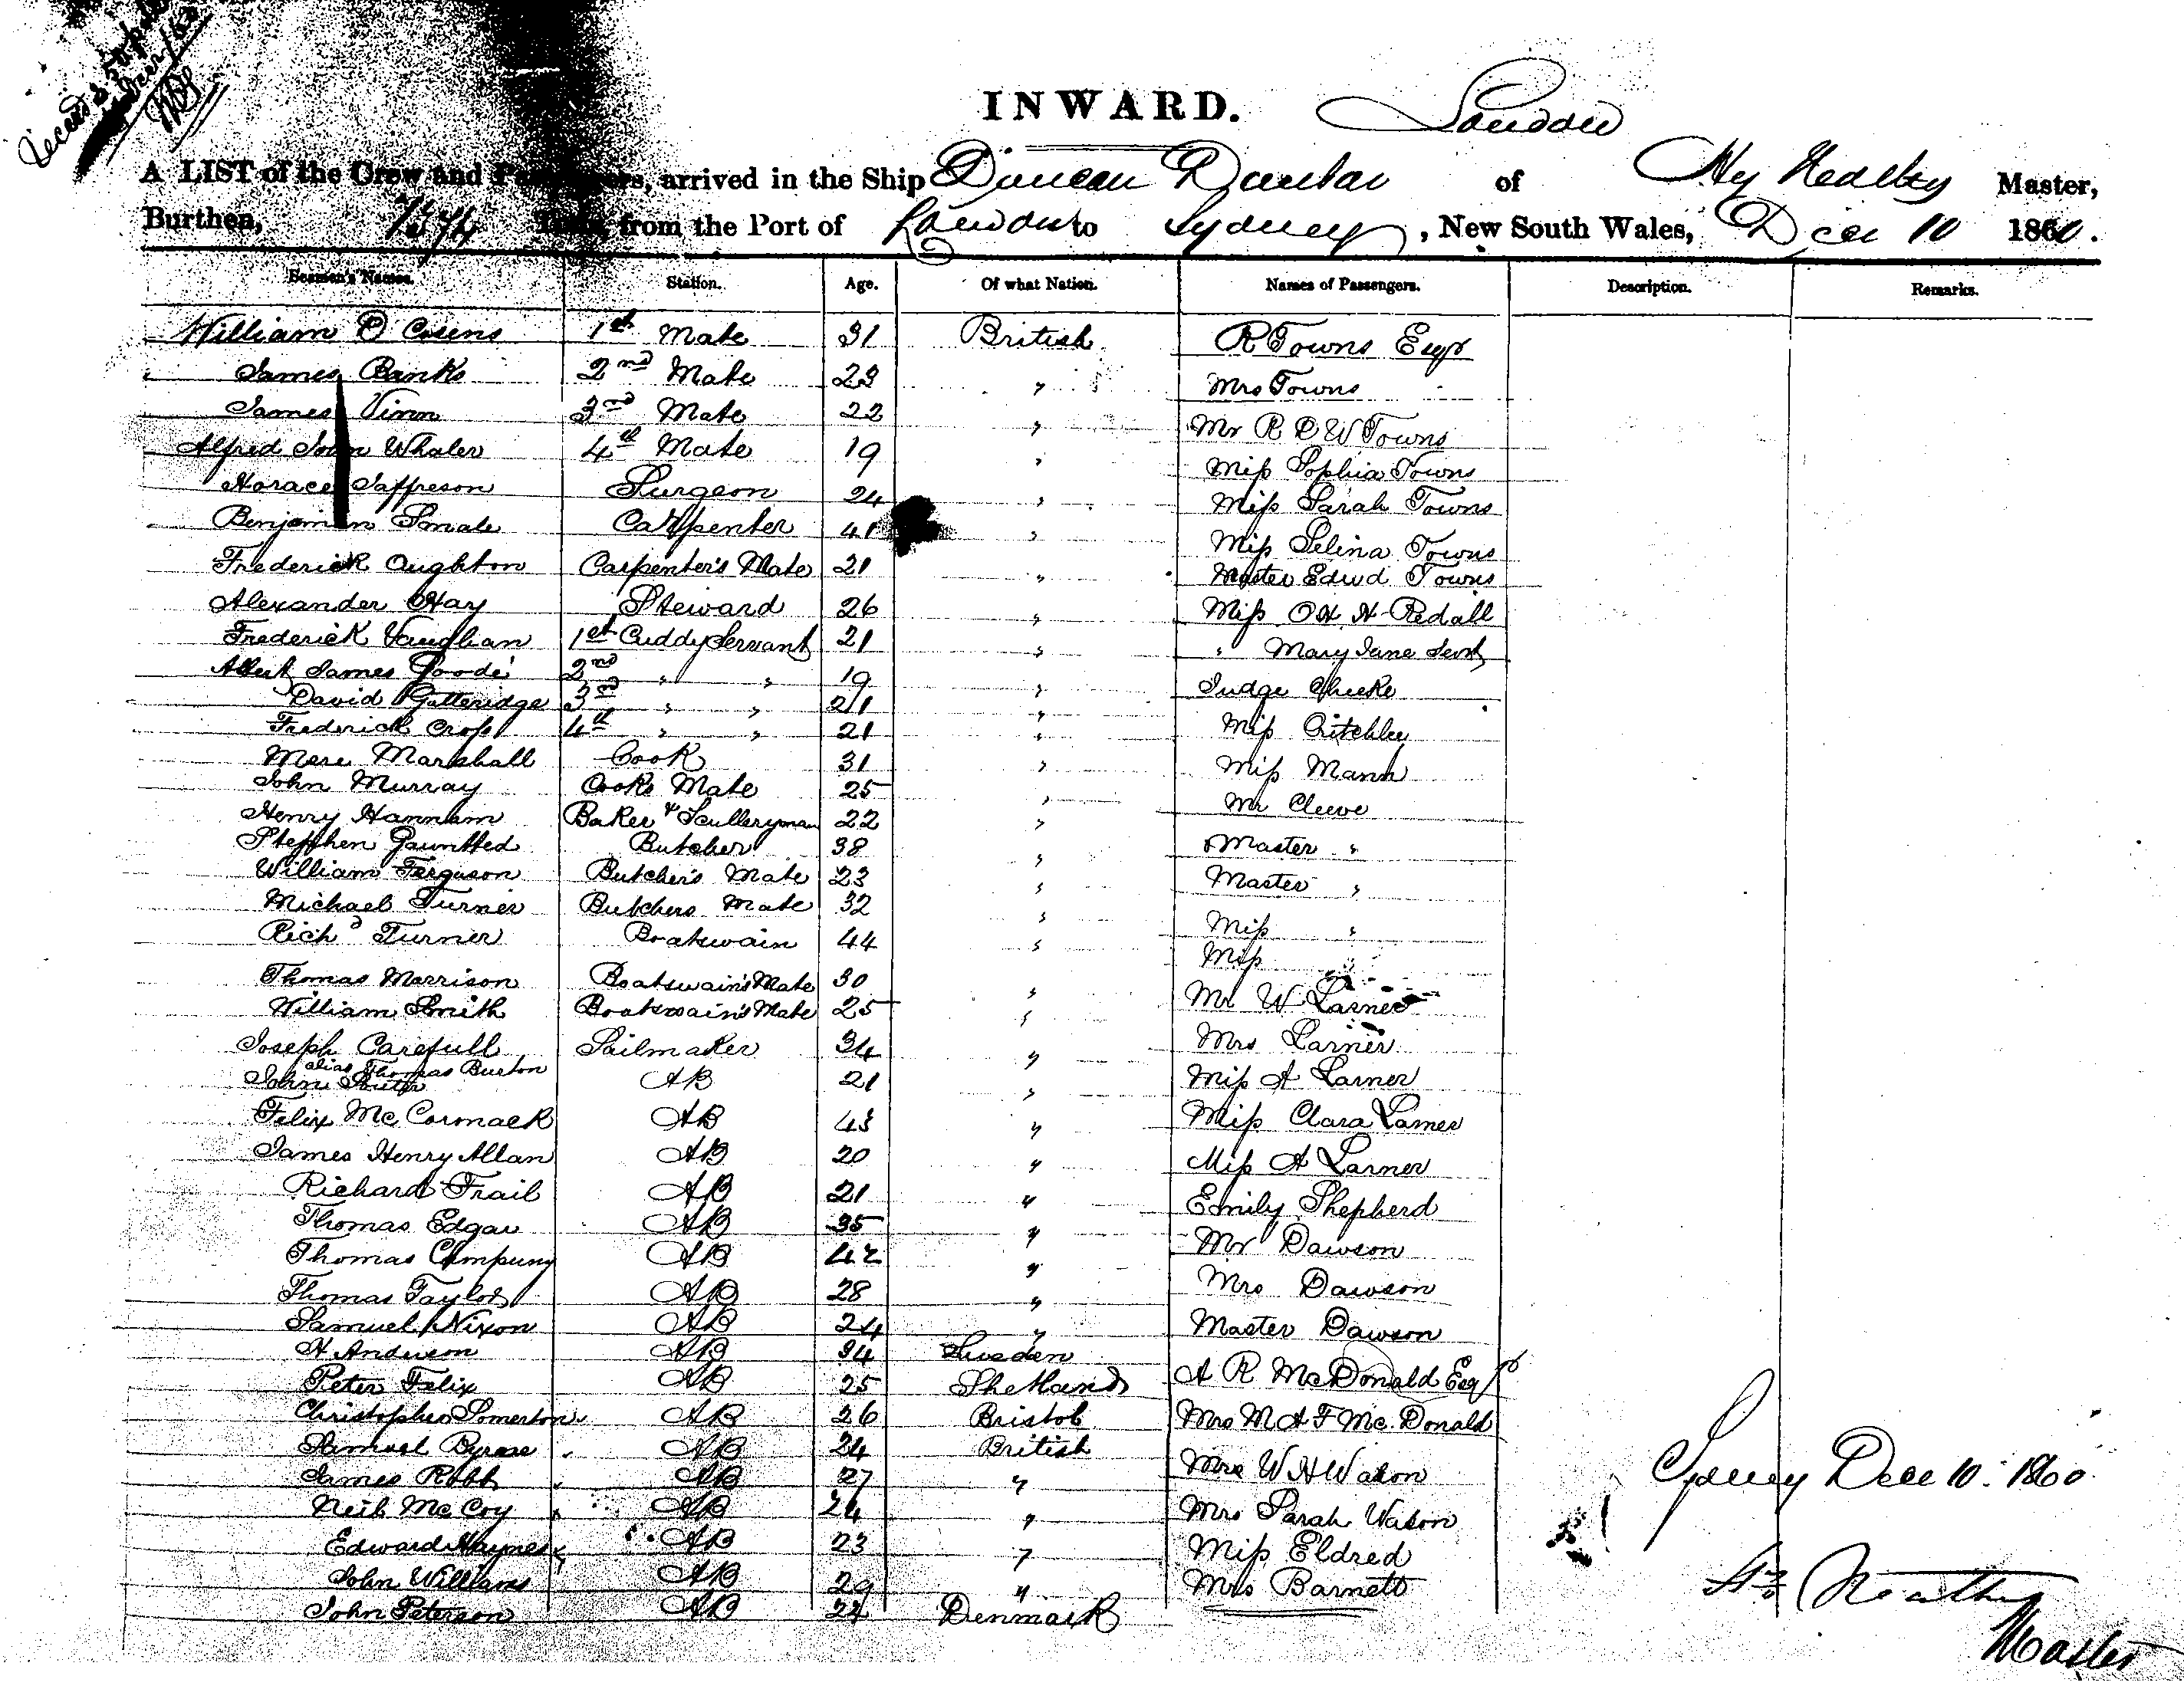 INWARD. London
A LIST of the Crew and Passengers, arrived in the Ship Duncan Dunbar of Hy Neatby Master,
Burthen, Tons, from the Port of London to Sydney, New South Wales, Decr 10 1860.
Seamen's Names. Station. Age. Of what Nation. Names of Passengers. Description. Remarks.
William O Cosens 1st Mate 31 British R Towns Esqr
James Banks 2nd Mate 23 " Mrs Towns
James Vinn 3rd Mate 22 " Mr R C W Towns
Alfred John Whaler 4th Mate 19 " Miss Sophia Towns
Horace Jaffreson Surgeon 24 " Miss Sarah Towns
Benjamin Smale Carpenter 41 " Miss Selina Towns
Frederick Oughton Carpenter's Mate 21 " Master Edwd Towns
Alexander Hay Steward 26 " Miss H Redall
Frederick Vaughan 1st Cuddy Servant 21 " " Mary Jane Servt
Albert James Goode 2nd " " 19 " Judge Cheeke
David Gutteridge 3rd " " 21 " Miss Critchley
Frederick Cross 4th " " 21 " Miss Mann
Marshall Cook 31 " Mr Cleeve
John Murray Cooks Mate 25 " Master "
Henry Hannam Baker & Sculleryman 22 " Master "
Stepphen Gauntled Butcher 38 " Miss "
William Ferguson Butcher's Mate 23 " Miss "
Michael Turner Butchers Mate 32 " Mr W Larner
Richd Turner Boatswain 44 " Mrs Larner
Thomas Morrison Boatswain's Mate 30 " Miss A Larner
William Smith Boatswain's Mate 25 " Miss Clara Larner
Joseph Carefull Sailmaker 34 " Miss A Larner
alias Thomas Burton
John AB 21 " Emily Shepherd
Felix McCormack AB 43 " Mr Dawson
James Henry Allan AB 20 " Mrs Dawson
Richard Frail AB 21 " Master Dawson
Thomas Edgar AB 35 " A R McDonald Esqr
Thomas AB 42 " Mrs M A F McDonald
Thomas Taylor AB 28 " Mrs W H Watson
Samuel Nixon AB 24 " Mrs Sarah Watson
H Anderson AB 34 Sweden Miss Eldred
Peter Felix AB 25 Shetland Mrs Barnett
Christopher Somerton AB 26 Bristol
Samuel Byrne AB 24 British
James Robb AB 27 "
Neil McCoy AB 24 "
Edward Haynes AB 23 "
John Williams AB 29 "
John Peterson AB 24 Denmark
Sydney Dec 10. 1860
Hy Neatby
Master